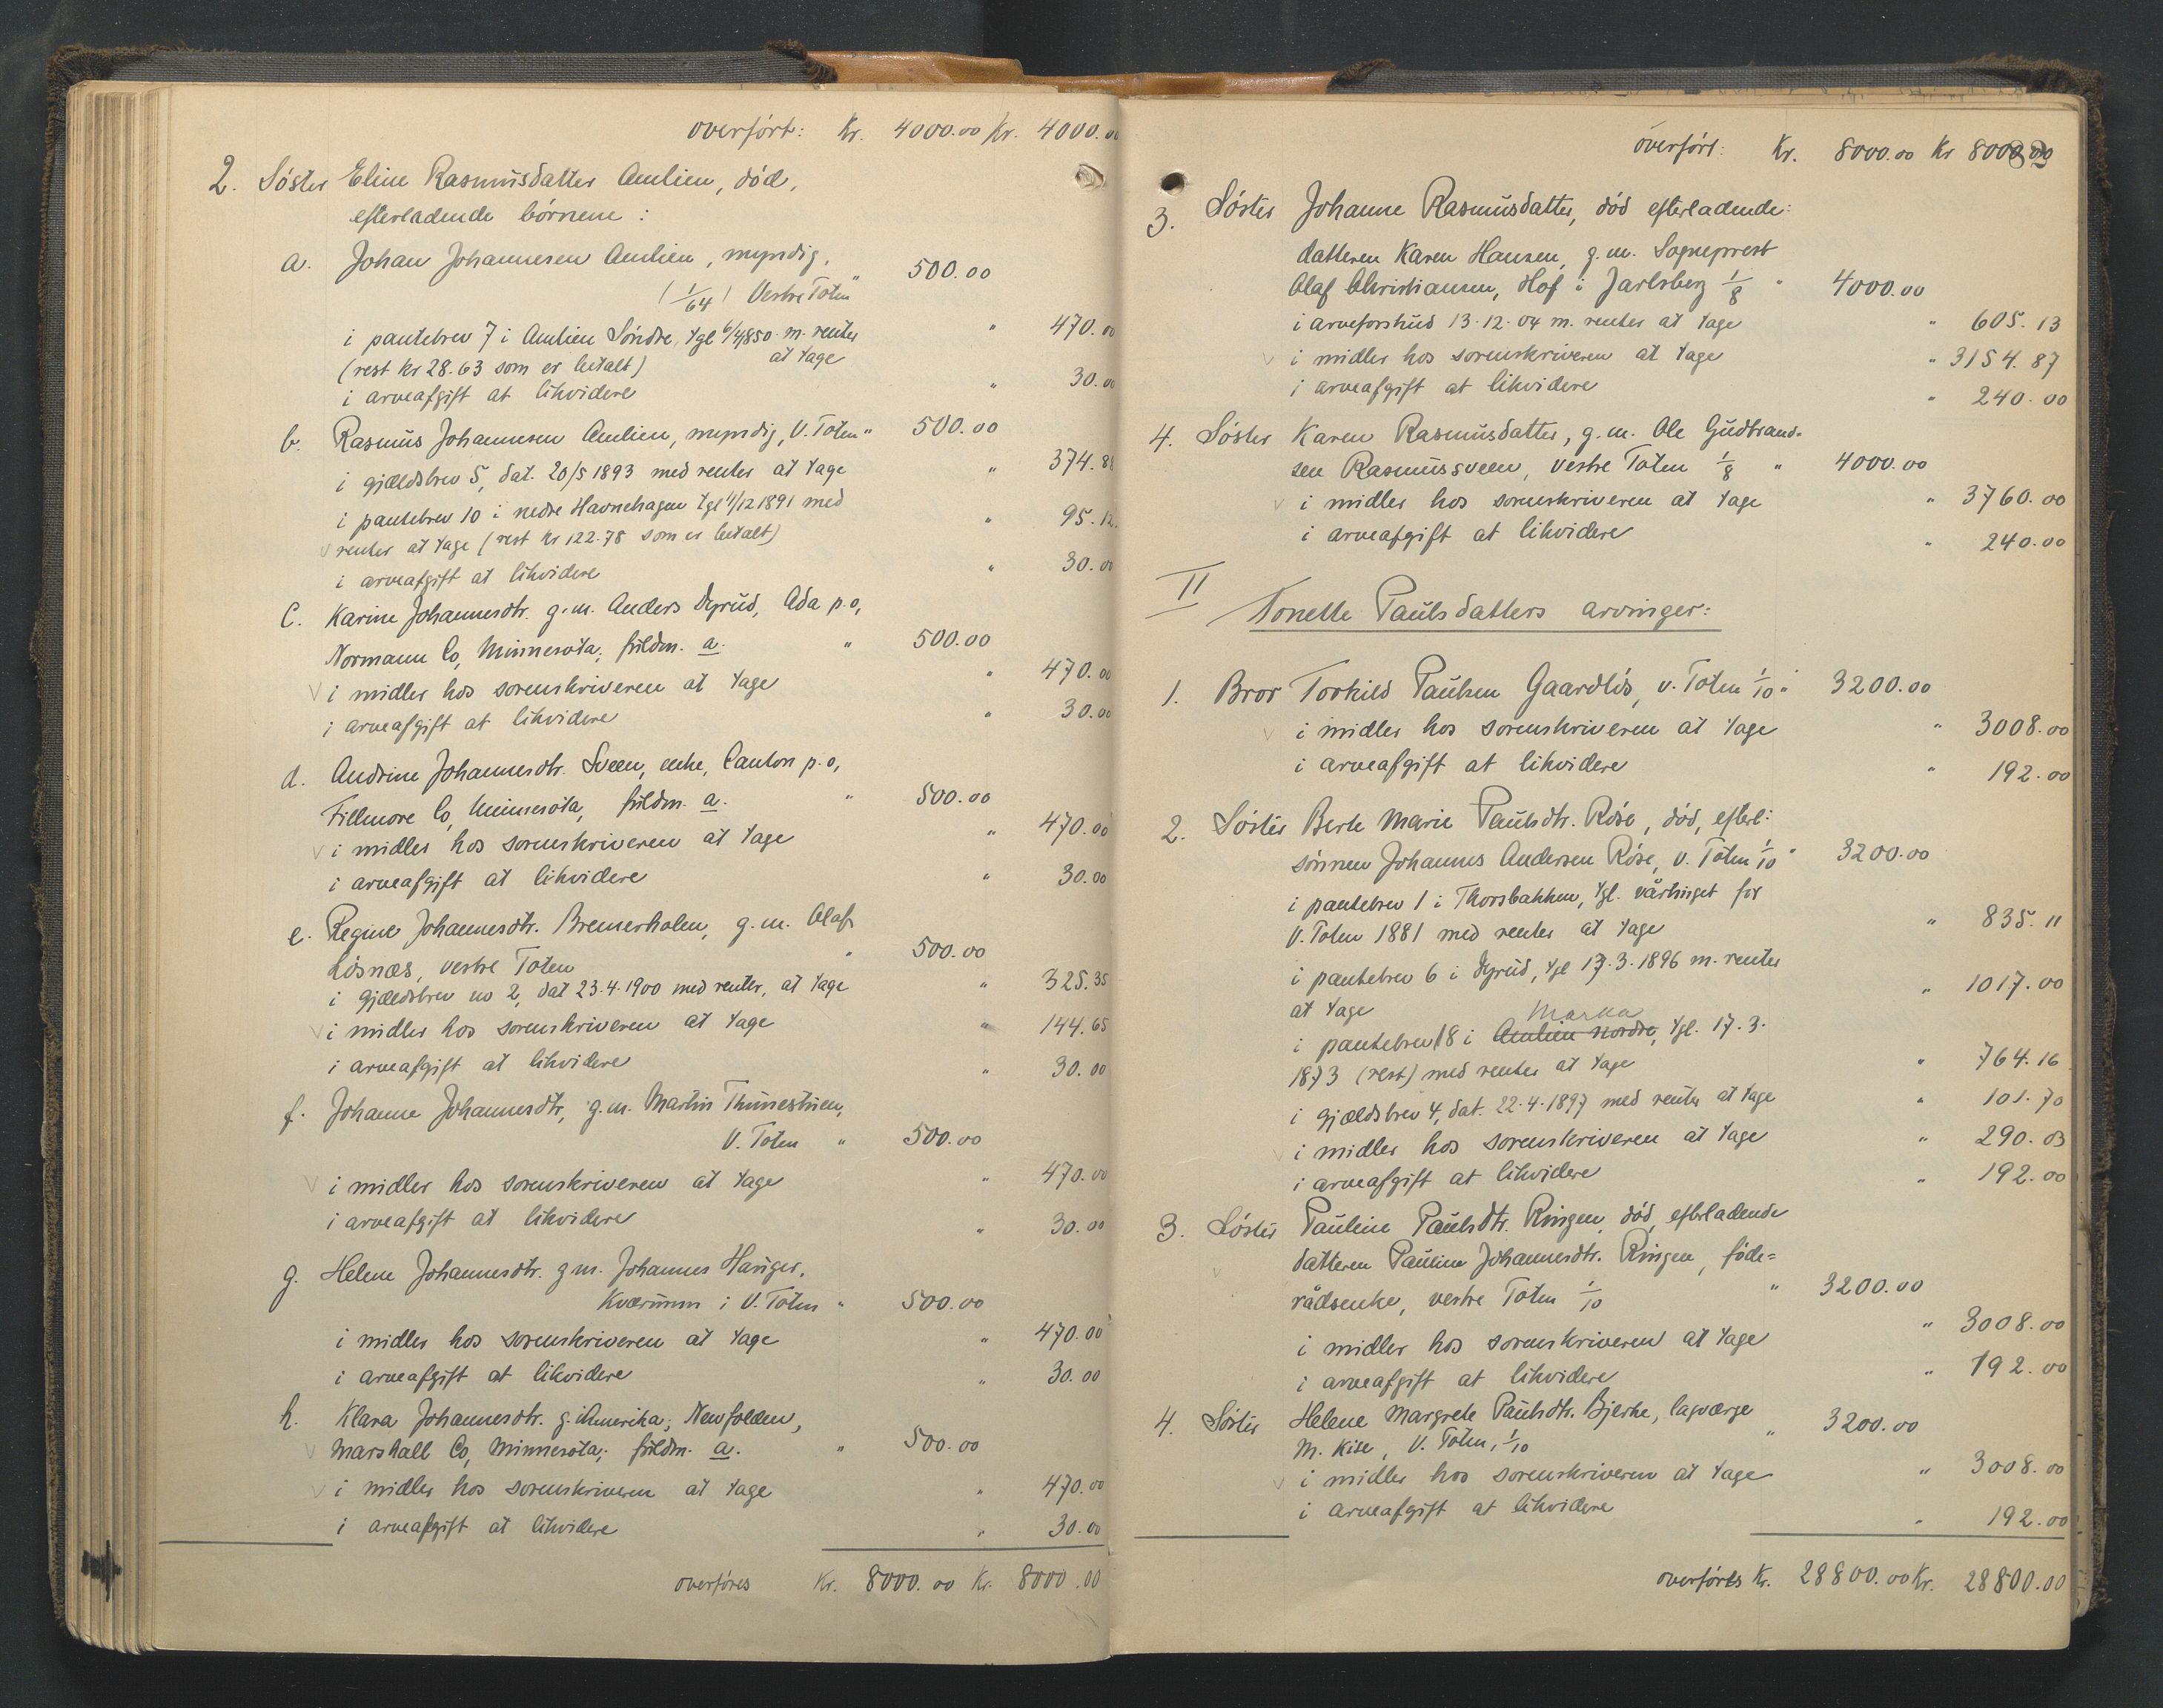 overført: Kr. 4000.00 Kr. 4000.00
2. Søster Eline Rasmusdatter Amlien, død,
efterladende börnene:
a. Johan Johannesen Amlien, myndig,
(1/64) Vestre Toten " 500.00
i pantebrev 7 i Amlien Söndre, tgl 6/4 1850 m. renter
at tage " 470.00
(rest kr 28.63 som er betalt)
i arveafgift at likvidere " 30.00
b. Rasmus Johannesen Amlien, myndig, V. Toten " 500.00
i gjældsbrev 5, dat. 20/5 1893 med renter at tage " 374.88
i pantebrev 10 i nedre Havnehagen tgl 1/12 1891 med
renter at tage (rest kr 122.78 som er betalt) " 95.12
i arveafgift at likvidere " 30.00
c. Karine Johannesdtr. g.m. Anders Dyrud, Ada p.o,
Normann Co, Minnesota; fuldm. a. " 500.00
i midler hos sorenskriveren at tage " 470.00
i arveafgift at likvidere " 30.00
d. Andrine Johannesdtr. Sveen, enke, Canton p.o,
Fillmore Co, Minnesota, fuldm. a. " 500.00
i midler hos sorenskriveren at tage " 470.00
i arveafgift at likvidere " 30.00
e. Regine Johannesdtr. Bremerholen, g.m. Olaf
Lösnæs, vestre Toten " 500.00
i gjældsbrev no 2, dat 23.4.1900 med renter, at tage " 325.35
i midler hos sorenskriveren at tage " 144.65
i arveafgift at likvidere " 30.00
f. Johanne Johannesdtr, g.m. Martin Thunestuen,
V. Toten " 500.00
i midler hos sorenskriveren at tage " 470.00
i arveafgift at likvidere " 30.00
g. Helene Johannesdtr. g.m. Johannes Hauger,
Kværnum i V. Toten " 500.00
i midler hos sorenskriveren at tage " 470.00
i arveafgift at likvidere " 30.00
h. Klara Johannesdtr. g. i Amerika; Newfolden,
Marshall Co, Minnesota; fuldm. a. " 500.00
i midler hos sorenskriveren at tage " 470.00
i arveafgift at likvidere " 30.00
overføres Kr. 8000.00 Kr. 8000.00
overført: Kr. 8000.00 Kr 8000.00
3. Søster Johanne Rasmusdatter, död efterladende:
datteren Karen Hansen, g.m. Sogneprest
Olaf Christiansen, Hof i Jarlsberg 1/8 " 4000.00
i arveforskud 13.12.04 m. renter at tage " 605.13
i midler hos sorenskriveren at tage " 3154.87
i arveafgift at likvidere " 240.00
4. Søster Karen Rasmusdatter, g.m. Ole Gudbrand-
sen Rasmussveen, vestre Toten 1/8 " 4000.00
i midler hos sorenskriveren at tage " 3760.00
i arveafgift at likvidere " 240.00
II Tonette Paulsdatters arvinger:
1. Bror Torkild Paulsen Gaardlös, v. Toten 1/10 " 3200.00
i midler hos sorenskriveren at tage " 3008.00
i arveafgift at likvidere " 192.00
2. Søster Berte Marie Paulsdtr. Röse, död, efterl:
sönnen Johannes Andersen Röse, v. Toten 1/10 " 3200.00
i pantebrev 1 i Thorsbakken, tgl. vårtinget for
V. Toten 1881 med renter at tage " 835.11
i pantebrev 6 i Dyrud, tgl 17.3.1896 m. renter
at tage " 1017.00
Marka
i pantebrev 18 i Amlien nordre, tgl. 17.3.
1873 (rest) med renter at tage " 764.16
i gjældsbrev 4, dat. 22.4.1897 med renter at tage " 101.70
i midler hos sorenskriveren at tage " 290.03
i arveafgift at likvidere " 192.00
3. Søster Pauline Paulsdtr. Ringen, död, efterladende
datteren Pauline Johannesdtr. Ringen, föde=
rådsenke, vestre Toten 1/10 " 3200.00
i midler hos sorenskriveren at tage " 3008.00
i arveafgift at likvidere " 192.00
4. Søster Helene Margrete Paulsdtr. Bjerke, lagværge
M. Kise, V. Toten, 1/10 " 3200.00
i midler hos sorenskriveren at tage " 3008.00
i arveafgift at likvidere " 192.00
overføres Kr. 28800.00 Kr. 28800.00